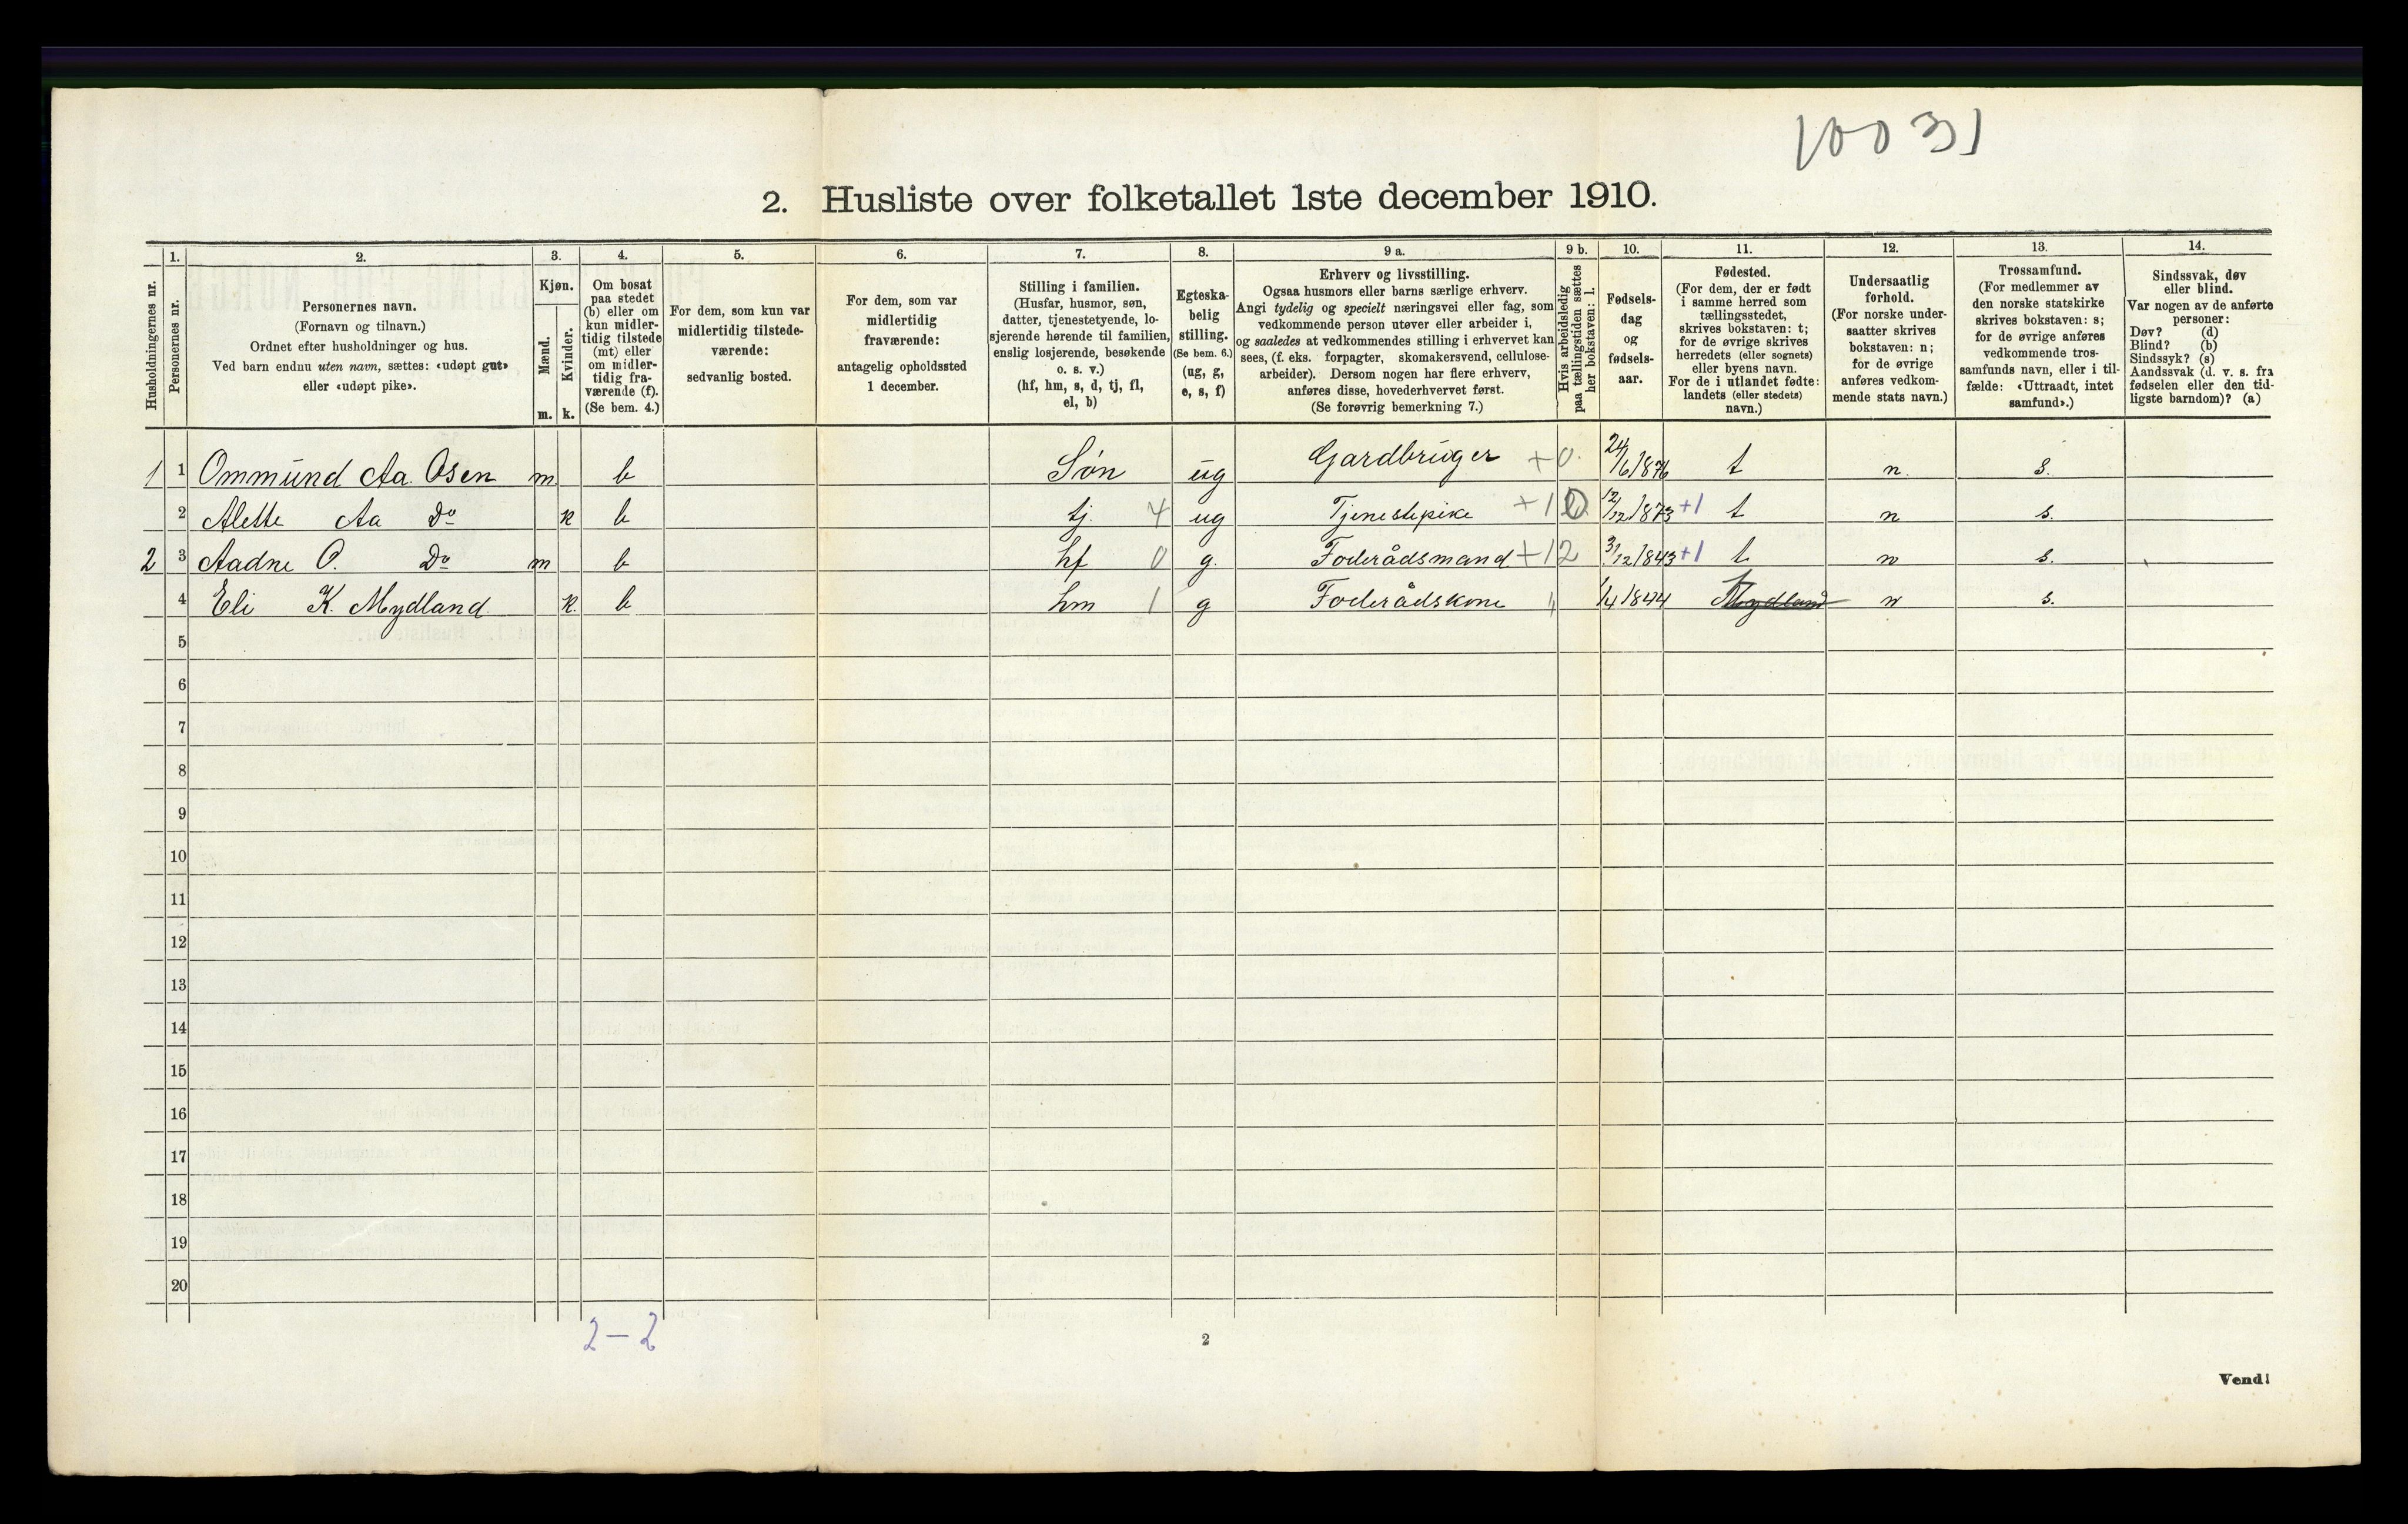 10031
2. Husliste over folketallet 1ste december 1910.
Husholdningernes nr.
1.
Personernes nr.
2.
Personernes navn.
(Fornavn og tilnavn.)
Ordnet efter husholdninger og hus.
Ved barn endnu uten navn, sættes: «udøpt gut»
eller «udøpt pike».
3.
Kjøn.
Mænd.
m.
Kvinder.
k.
4.
Om bosat
paa stedet
(b) eller om
kun midler-
tidig tilstede
(mt) eller
om midler-
tidig fra-
værende (f).
(Se bem. 4.)
5.
For dem, som kun var
midlertidig tilstede-
værende:
sedvanlig bosted.
6.
For dem, som var
midlertidig
fraværende:
antagelig opholdssted
1 december.
7.
Stilling i familien.
(Husfar, husmor, søn,
datter, tjenestetyende, lo-
sjerende hørende til familien,
enslig losjerende, besøkende
o. s. v.)
(hf, hm, s, d, tj, fl,
el, b)
8.
Egteska-
belig
stilling.
(Se bem. 6.)
(ug, g,
e, s, f)
9 a.
Erhverv og livsstilling.
Ogsaa husmors eller barns særlige erhverv.
Angi tydelig og specielt næringsvei eller fag, som
vedkommende person utøver eller arbeider i,
og saaledes at vedkommendes stilling i erhvervet kan
sees, (f. eks. forpagter, skomakersvend, cellulose-
arbeider). Dersom nogen har flere erhverv,
anføres disse, hovederhvervet først.
(Se forøvrig bemerkning 7.)
9 b.
Hvis arbeidsledig
paa tællingstiden sættes
her bokstaven: l.
10.
Fødsels-
dag
og
fødsels-
aar.
11.
Fødested.
(For dem, der er født
i samme herred som
tællingsstedet,
skrives bokstaven: t;
for de øvrige skrives
herredets (eller sognets)
eller byens navn.
For de i utlandet fødte:
landets (eller stedets)
navn.)
12.
Undersaatlig
forhold.
(For norske under-
saatter skrives
bokstaven: n;
for de øvrige
anføres vedkom-
mende stats navn.)
13.
Trossamfund.
(For medlemmer av
den norske statskirke
skrives bokstaven: s;
for de øvrige anføres
vedkommende tros-
samfunds navn, eller i til-
fælde: «Uttraadt, intet
samfund».)
14.
Sindssvak, døv
eller blind.
Var nogen av de anførte
personer:
Døv? (d)
Blind? (b)
Sindssyk? (s)
Aandssvak (d. v. s. fra
fødselen eller den tid-
ligste barndom)? (a)
1 1 Ommund Aa. Osen m b Søn ug Gardbruger +0. 24/6 1876 t n. s.
2 Alette Aa Do k b tj. 4 ug Tjenestepike +10 12/12 1873 +1 t n s.
2 3 Aadne O. Do m b hf 0 g. Foderådsmand +12 3/12 1843 +1 t n s.
4 Eli K. Mydland k. b hm 1 g Foderådskone 1/4 1844 Mydland n s.
5
6
7
8
9
10
11
12
13
14
15
16
17
18
19
20
2 – 2
2
Vend!